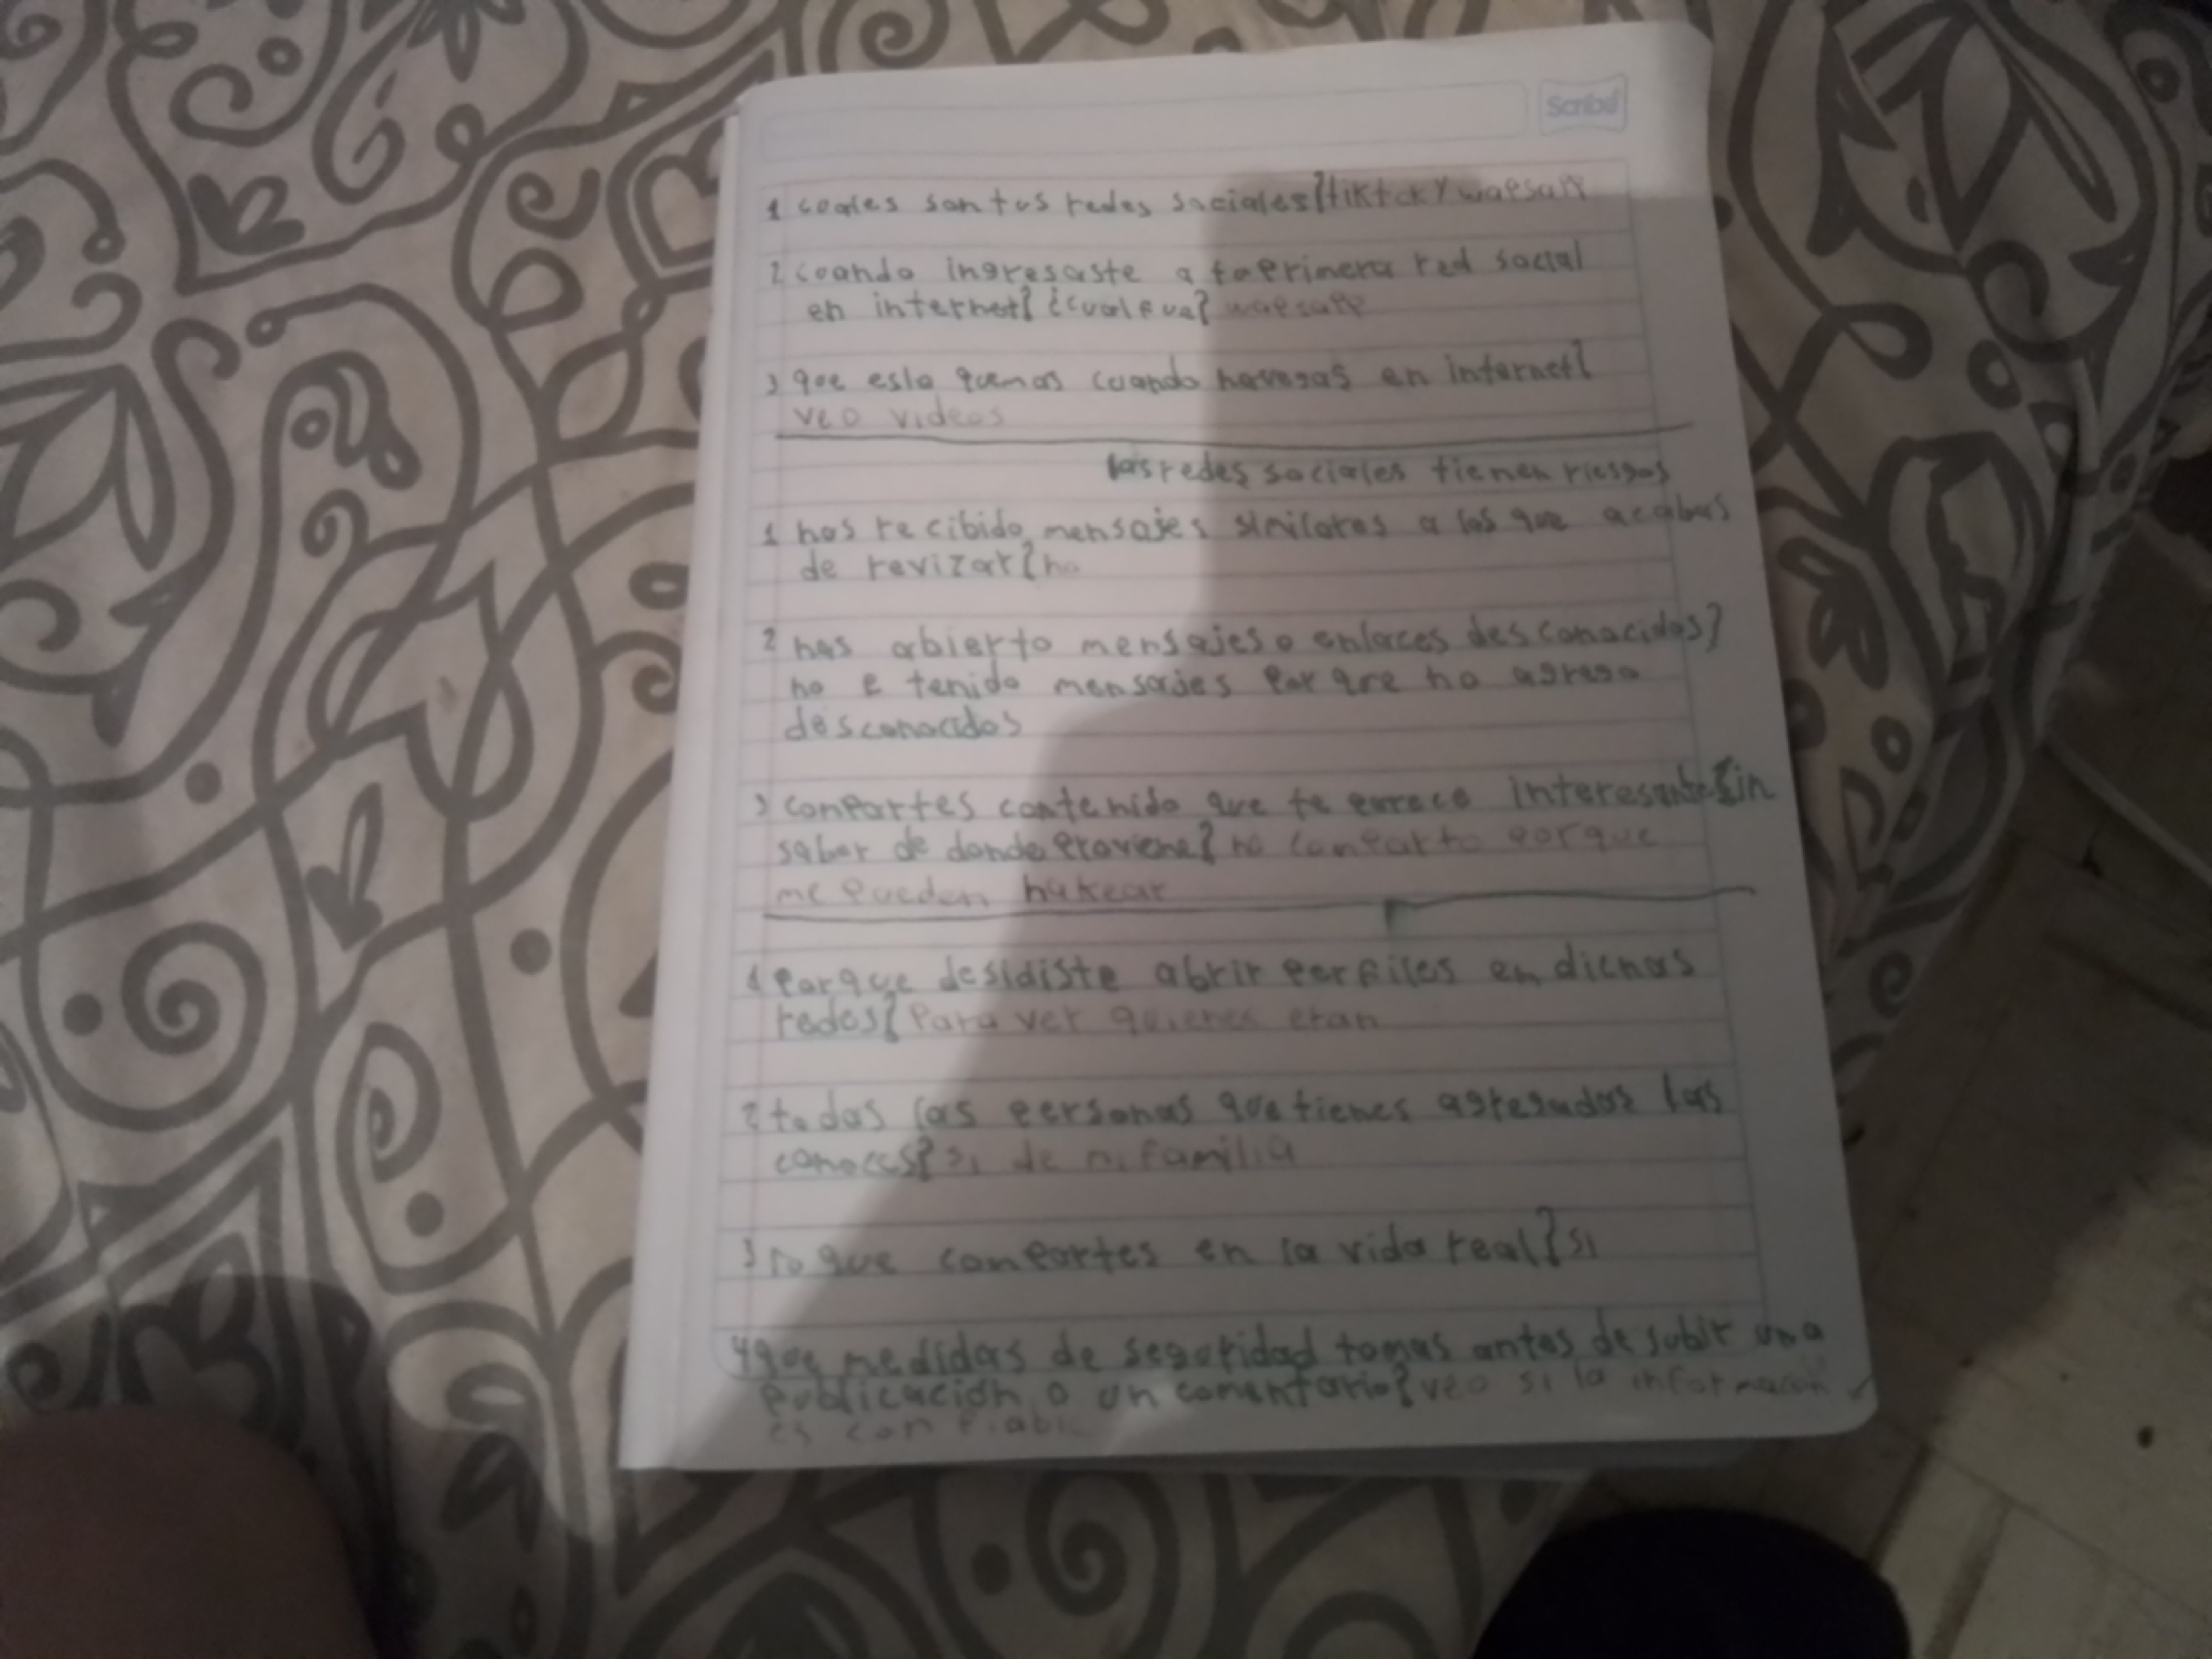 Scribd
1 coales son tus redes sociales? tiktok y watsapp
2 coando ingresaste a tu primera red social
en internet? ¿cual fue? watsapp
3 que es lo que mas cuando navegas en internet?
veo videos
las redes sociales tienen riesgos
1 has recibido mensajes similares a los que acabas
de revizar? no
2 has abierto mensajes o enlaces desconocidos?
no e tenido mensajes por que no agrego
desconocidos
3 compartes contenido que te parece interesante sin
saber de donde proviene? no comparto porque
me pueden hakear
1 porque desidiste abrir perfiles en dichas
redes? Para ver quienes eran
2 todas las personas que tienes agregadas las
conoces? si de mi familia
3 lo que compartes en la vida real? si
4 que medidas de seguridad tomas antes de subir una
publicación o un comentario? veo si la información
es confiable